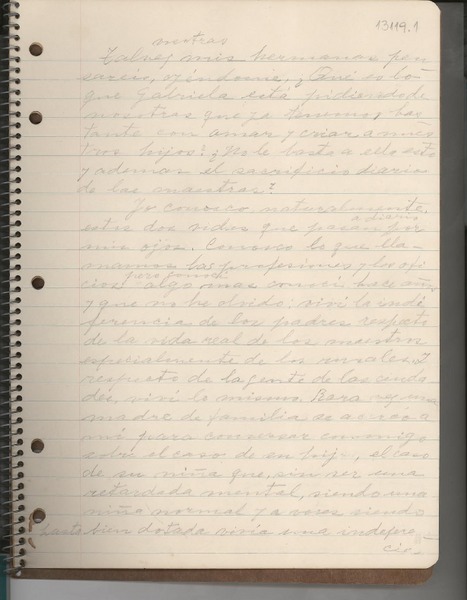 13119.1
nosotras
Talvez mis hermanas pen
sareis, oyéndome, ¿Qué es lo
que Gabriela está pidiendo de
nosotras que ya tenemos bas
tante con amar y criar a nues
tros hijos? ¿No le basta a ella esto
y además el sacrificio diario
de las maestras?
Yo conozco, naturalmente,
a diario
estas dos vidas que pasan por
mis ojos. Conozco lo que lla-
mamos las profesiones y los ofi
cios;
algo mas conocí hace años
y que no he olvido: viví la indi
ferencia de los padres respecto
de la vida real de los maestros
especialmente de los rurales. I
respecto de la gente de las ciuda
des, viví lo mismo. Rara vez una
madre de familia se acercó a
mí para conversar conmigo
sobre el caso de su hijo, el caso
de su niña que, sin ser una
retardada mental, siendo una
niña normal y a veces siendo
hasta bien dotada vivía una indiferen
cia.